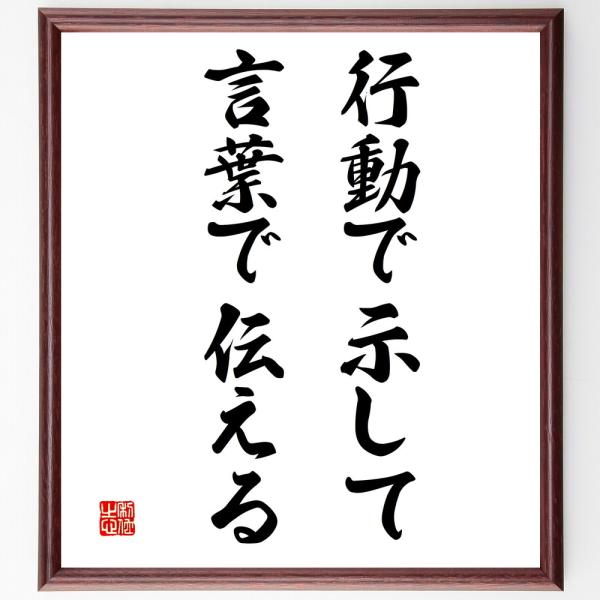 行動で示して
言葉で伝える